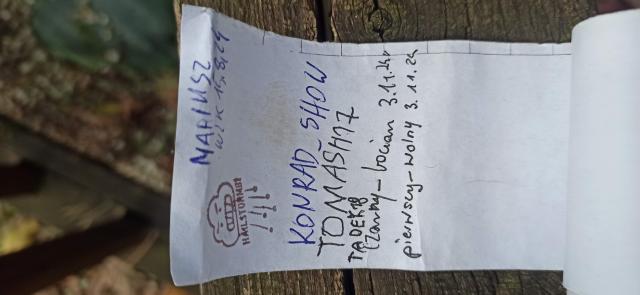 MARIUSZ
HAILSTORM82
KONRAD_SHOW
TOMASH17
TADEK78
Czarny-bocian 3.11.24
pierwszy-wolny 3.11.24